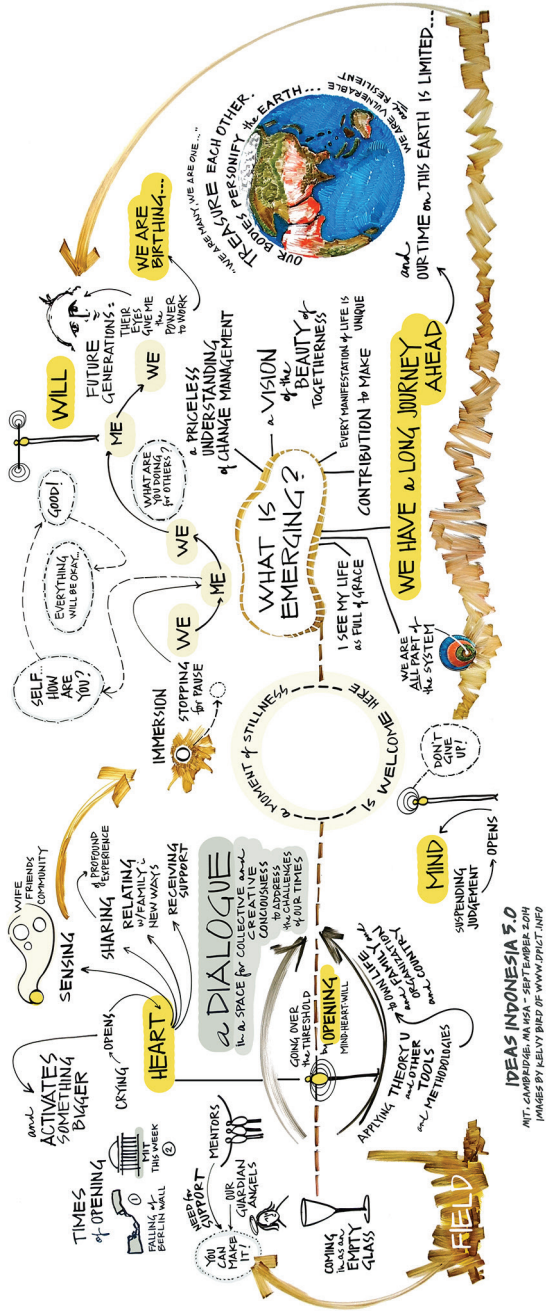 TIMES
of OPENING
①
FALLING of
BERLIN WALL
MIT
THIS WEEK
②
and
ACTIVATES
SOMETHING
BIGGER
CRYING
OPENS
HEART
SENSING
WIFE
FRIENDS
COMMUNITY
SHARING
of PROFOUND
EXPERIENCE
RELATING
w/FAMILY i
NEW WAYS
RECEIVING
SUPPORT
NEED for
SUPPORT
MENTORS
OUR
GUARDIAN
ANGELS
YOU
CAN
MAKE
IT!
COMING
in as an
EMPTY
GLASS
a DIALOGUE
in a SPACE for COLLECTIVE and
CREATIVE
CONCIOUSNESS
to ADDRESS
the CHALLENGES
of OUR TIMES
GOING OVER
the THRESHOLD
by OPENING
MIND-HEART-WILL
APPLYING THEORY U
and OTHER
TOOLS
and METHODOLOGIES
to OWN LIFE
and FAMILY and
ORGANIZATION
and COUNTRY
FIELD
MIND
SUSPENDING
JUDGEMENT
OPENS
DON'T
GIVE
UP!
a MOMENT of STILLNESS
IS WELCOME HERE
IMMERSION
STOPPING
for PAUSE
SELF...
HOW
ARE
YOU?
EVERYTHING
WILL BE OKAY...
GOOD!
WE
ME
WE
WHAT ARE
YOU DOING
for OTHERS?
ME
WE
WILL
FUTURE
GENERATIONS:
THEIR
EYES
GIVE ME
the
POWER
to WORK
WE ARE
BIRTHING...
WHAT IS
EMERGING?
a PRICELESS
UNDERSTANDING
of CHANGE MANAGEMENT
a VISION
of the
BEAUTY of
TOGETHERNESS
EVERY MANIFESTATION of LIFE IS
UNIQUE
CONTRIBUTION to MAKE
I SEE MY LIFE
as FULL of GRACE
WE ARE
ALL PART of
the SYSTEM
WE HAVE a LONG JOURNEY
AHEAD
and
OUR TIME on THIS EARTH IS LIMITED...
"WE ARE MANY, WE ARE ONE..."
TREASURE EACH OTHER.
OUR BODIES PERSONIFY the EARTH...
WE ARE VULNERABLE
and RESILIENT
IDEAS INDONESIA 5.0
MIT, CAMBRIDGE, MA USA - SEPTEMBER 2014
IMAGES BY KELVY BIRD OF WWW.DPICT.INFO